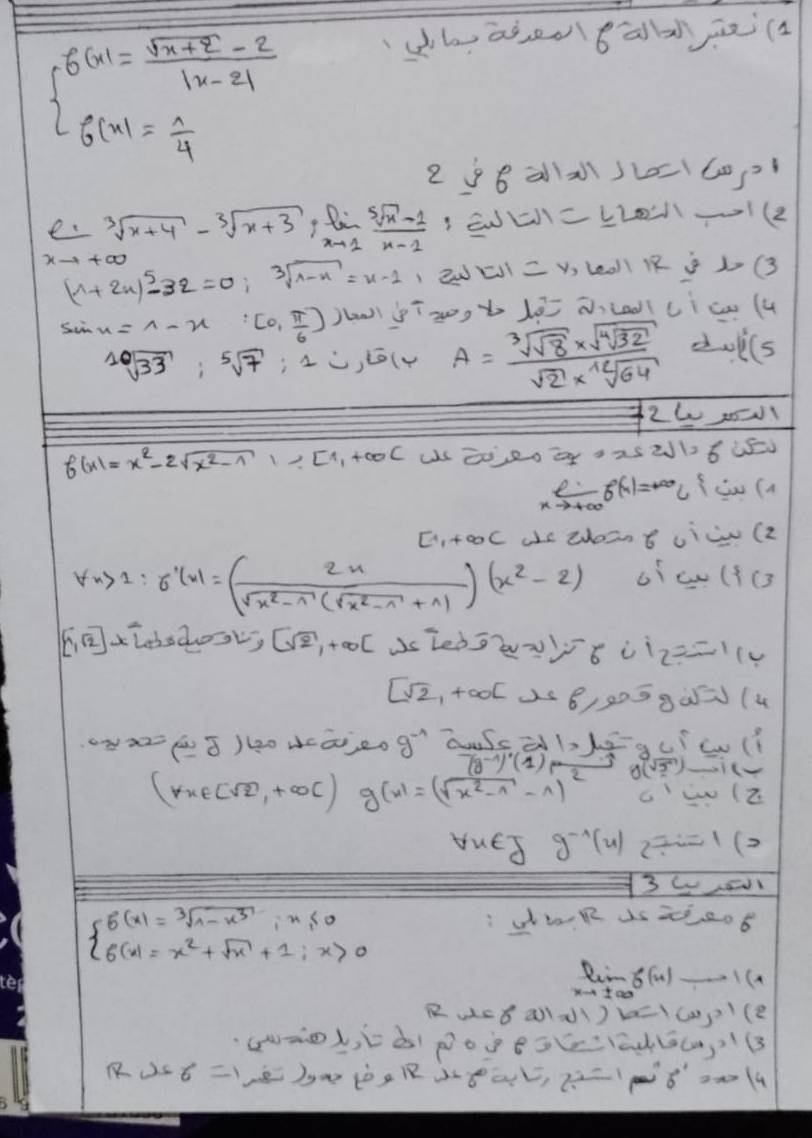 1) نعتبر الدالة f المعرفة بما يلي :
{ f(x) = (√(x+2) - 2) / |x-2|
f(x) = 1/4
ادرس اتصال الدالة f في 2
2) احسب النهايات التالية : lim x→1 (⁵√x - 1)/(x-1) ; lim x→+∞ ³√(x+4) - ³√(x+3)
3) حل في R المعادلات التالية : ³√(1-x) = x-1 ; (1+2x)⁵-32=0
4) بين أن المعادلة تقبل حلا وحيدا في المجال [0, π/6] : sin x = 1 - x
5) أ) بسط A = (³√√8 × √(⁴√32)) / (√2 × ¹²√64) ب) قارن 1 ; ⁵√7 ; ¹⁰√33
التمرين 2
لتكن f دالة عددية معرفة على [1,+∞[ بـ : f(x) = x² - 2√(x²-1)
1) بين أن lim x→+∞ f(x) = +∞
2) بين أن f متصلة على [1,+∞[
3) أ) بين أن ∀x>1 : f'(x) = (2x / (√(x²-1) (√(x²-1) + 1))) (x²-2)
ب) استنتج أن f تزايدية قطعاً على [√2,+∞[ وتناقصية قطعاً على [1,√2]
4) لتكن g قصور f على [√2,+∞[
أ) بين أن g تقبل دالة عكسية g⁻¹ معرفة على مجال J يتم تحديده.
ب) احسب g(√5) ثم (g⁻¹)'(1)
ج) بين أن g(x) = (√(x²-1) - 1)² (∀x∈[√2,+∞[)
د) استنتج g⁻¹(x) ∀x∈J
التمرين 3
f معرفة على R بما يلي :
{ f(x) = ³√(1-x³) ; x≤0
f(x) = x² + √x + 1 ; x>0
1) احسب lim x→±∞ f(x)
2) ادرس اتصال الدالة f على R
3) ادرس قابلية اشتقاق f في 0 ثم اعط تأويلا هندسي.
4) حدد f' ثم استنتج رتابة f على R وضع جدول تغيرات f على R